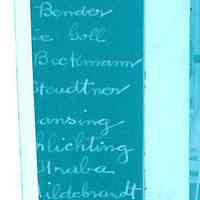 Bender
ie Goll
Beckmann
Steudtner
ansing
chlichting
Straba
ildebrandt